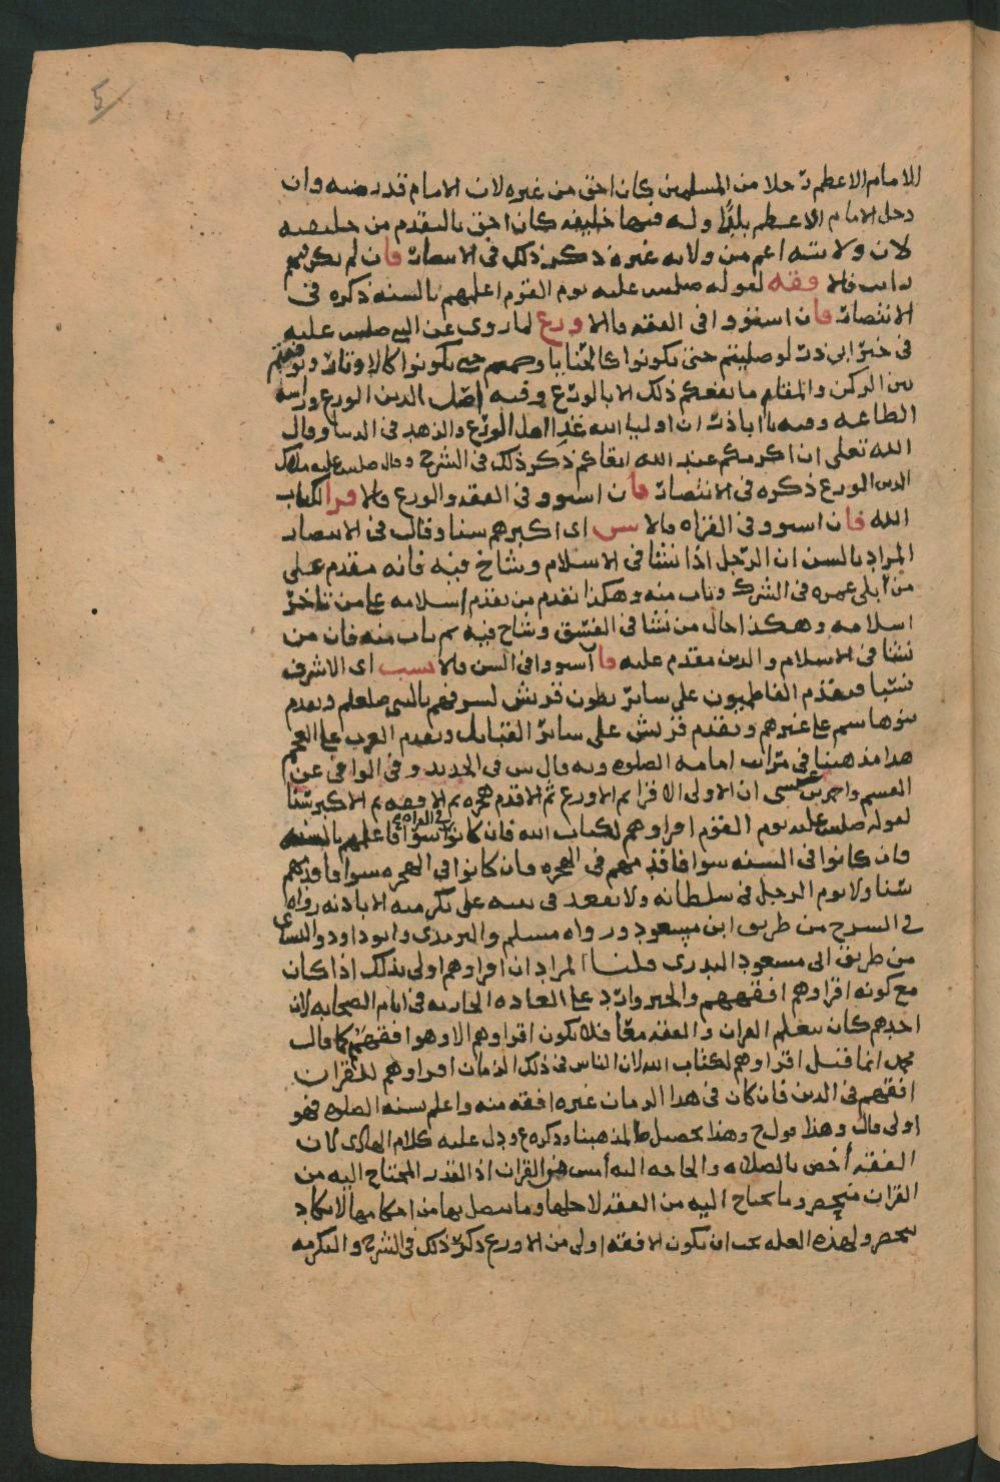 5
الامام الاعظم رجلا من المسلمين كان احق من غيره لان الامام قد رضيه وان
دخل الامام الاعظم بلدا وله فيها خليفه كان احق بالتقدم من خليفته
لان ولايته اعم من ولايه غيره ذكر ذلك في الانتصار فان لم يكن ثم
راتب فالافقه لقوله صلعم عليه يوم القوم اعلمهم بالسنه ذكره في
الانتصار فان استووا في الفقه فالاورع لما روي عن النبي صلعم عليه
في خبر ابي ذر لو صليتم حتى تكونوا كالحنايا وصمتم حتى تكونوا كالاوتار وتوفيتم
بين الركن والمقام ما نفعكم ذلك الا بالورع وفيه اصل الدين الورع وراسه
الطاعه وفيه يا اباذر ان اوليا الله غدا اهل الورع والزهد في الدنيا وقال
الله تعلى ان اكرمكم عند الله اتقاكم ذكر ذلك في الشرح وقال صلعم عليه ملاك
الدين الورع ذكره في الانتصار فان استووا في الفقه والورع فالاقرا لكتاب
الله فان استووا في القراه فالاسن اي اكبرهم سنا وقال في الانتصار
المراد بالسن ان الرجل اذا نشا في الاسلام وشاخ فيه فانه مقدم على
من ابلى عمره في الشرك وتاب منه وهكذا تقدم من تقدم اسلامه على من تاخر
اسلامه وهكذا حال من نشا في الفسق وشاخ فيه ثم تاب منه فان من
نشا في الاسلام والدين مقدم عليه فان استووا في السن فالانسب اي الاشرف
نسبا فيقدم الفاطميون على سائر بطون قريش لشرفهم بالنبي صلعلم ويقدم
بنو هاشم على غيرهم وتقدم قريش على سائر القبائل ويقدم العرب على العجم
هذا مذهبنا في مراتب امامه الصلوه وبه قال س في الجديد وفي الوافي عن
القسم واحمد بن عيسى ان الاولى الاقرا ثم الاورع ثم الاقدم هجره ثم الافقه ثم الاكبر سنا
لقوله صلعم عليه يوم القوم اقراوهم لكتاب الله فان كانوا في القراه سوا فاعلمهم بالسنه
فان كانوا في السنه سوا فاقدمهم في الهجره فان كانوا في الهجره سوا فاقدمهم
سنا ولا يوم الرجل في سلطانه ولا يقعد في بيته على تكرمته الا باذنه رواه
في الشرح من طريق ابن مسعود ورواه مسلم والترمذي وابو داود والنساي
من طريق ابي مسعود البدري قلنا المراد ان اقراوهم اولى بذلك اذا كان
مع كونه اقراوهم افقههم والخبر وارد على العاده الجاريه في ايام الصحابه لان
احدهم كان يتعلم القران والفقه معا فلا يكون اقراوهم الا وهو افقههم كما قال
محمد انما قيل اقراوهم لكتاب الله لان الناس في ذلك الزمان اقراوهم للقران
افقههم في الدين فان كان في هذا الزمان غيره افقه منه واعلم بسنه الصلوه فهو
اولى قال وهذا قول ح وهذا تحصيل ط لمذهبنا وذكره ع ودل عليه كلام الهادي لان
الفقه اخص بالصلاه والحاجه اليه امس من القران اذ القدر المحتاج اليه من
القران منحصر وما يحتاج اليه من الفقه لاجلها وما يتصل بها من احكامها لا يكاد
ينحصر ولهذه العله يجب ان يكون الافقه اولى من الاورع ذكر ذلك في الشرح والتكرمه